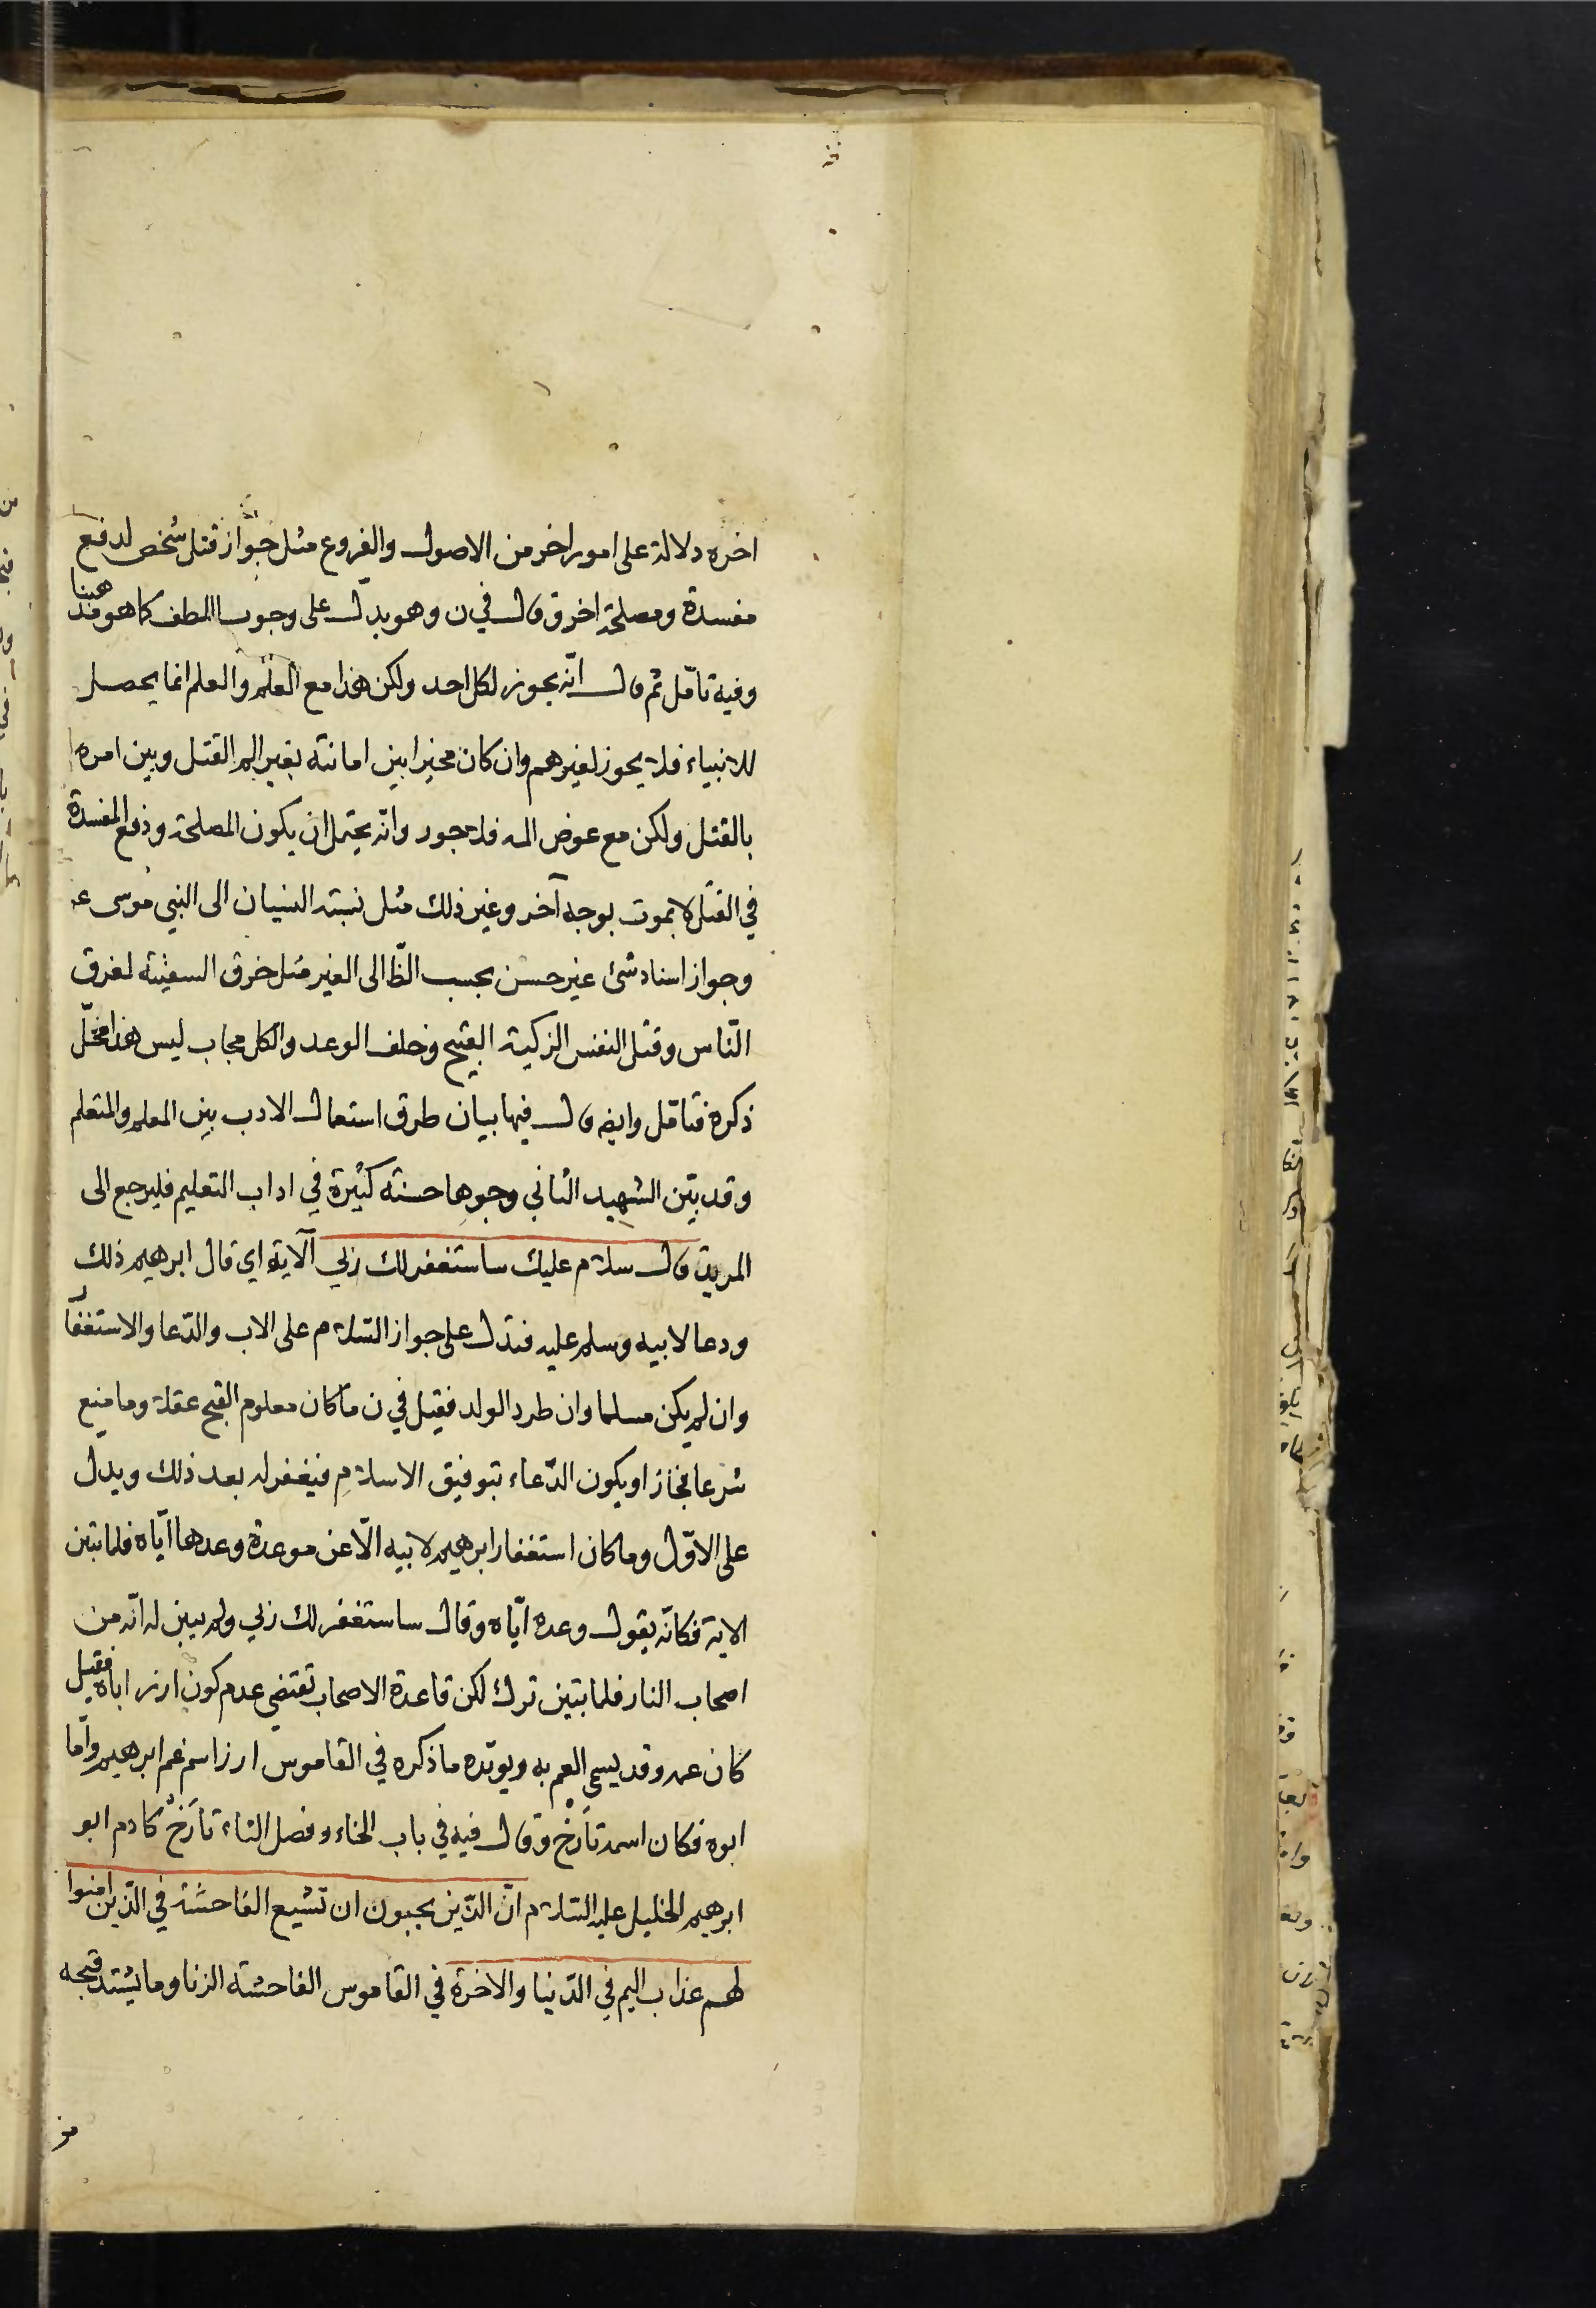 اخره دلالة على امور اخر من الاصول والفروع مثل جواز قتل شخص لدفع
مفسدة ومصلحة اخرى قال في ن وهو يدل على وجوب اللطف كما هو مذهبنا
وفيه تامّل ثم قال انّه يجوز لكل احد ولكن هذا مع العلم والعلم انما يحصل
للانبياء فلا يجوز لغيرهم وان كان مخيرا بين اماتته بغير الم القتل وبين امره
بالقتل ولكن مع عوض الم فلا جور وانّه يحتمل ان يكون المصلحة ودفع المفسدة
في القتل لا بموت بوجه آخر وغير ذلك مثل نسبته النسيان الى النبي موسى ع
وجواز اسناد شئ غير حسن بحسب الظّا الى الغير مثل خرق السفينة لغرق
النّاس وقتل النفس الزكية القبيح وخلف الوعد والكل مجاب ليس هذا محلّ
ذكره فتامّل وايضا قال فيها بيان طرق استعمال الادب بين المعلم والمتعلم
وقد بيّن الشهيد الثاني وجوها حسنة كثيرة في اداب التعليم فليرجع الى
المريد قال سلام عليك ساستغفر لك ربي الآية اي قال ابرهيم ذلك
ودعا لابيه وسلم عليه فتدل على جواز السّلام على الاب والدّعا والاستغفار
وان لم يكن مسلما وان طرد الولد فقيل في ن ما كان معلوم القبح عقلا وما منع
شرعا فجاز او يكون الدّعاء بتوفيق الاسلام فيغفر له بعد ذلك ويدل
على الاوّل وما كان استغفار ابرهيم لابيه الّا عن موعدة وعدها ايّاه فلما تبين
الاية فكانّه يقول وعده ايّاه وقال ساستغفر لك ربي ولم يبين له انّه من
اصحاب النار فلما تبين ترك لكن قاعدة الاصحاب تقتضي عدم كون ازر اباه فقيل
كان عمه وقد يسمى العم به ويويّده ما ذكره في القاموس ازر اسم عم ابرهيم وامّا
ابوه فكان اسمه تارَخْ وقال فيه في باب الخاء وفصل التاء تارَخْ كادم ابو
ابرهيم الخليل عليه السّلام انّ الذّين يحبون ان تشيع الفاحشة في الذّين امنوا
لهم عذاب اليم في الدّنيا والاخرة في القاموس الفاحشة الزنا وما يشتد قبحه
من